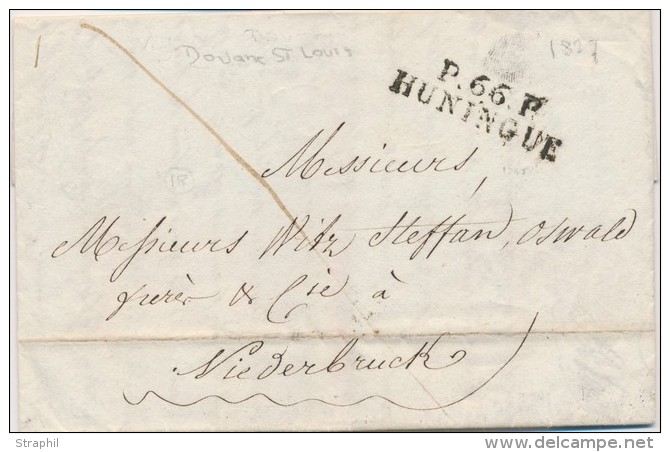 Douane St Louis
1827
P.66.P.
HUNINGUE
Messieurs,
18
Messieurs Witz Steffan, Oswald
frères & Cie à
Niederbruck
Straphil
delcampe.net